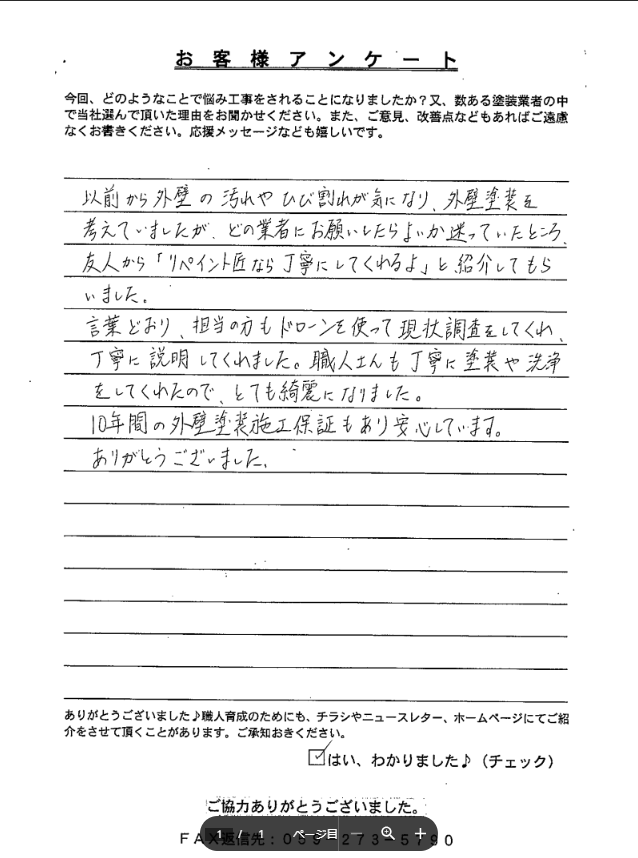 お客様アンケート
今回、どのようなことで悩み工事をされることになりましたか？又、数ある塗装業者の中
で当社選んで頂いた理由をお聞かせください。また、ご意見、改善点などもあればご遠慮
なくお書きください。応援メッセージなども嬉しいです。
以前から外壁の汚れやひび割れが気になり、外壁塗装を
考えていましたが、どの業者にお願いしたらよいか迷っていたところ、
友人から「リペイント匠なら丁寧にしてくれるよ」と紹介してもら
いました。
言葉どおり、担当の方もドローンを使って現状調査をしてくれ、
丁寧に説明してくれました。職人さんも丁寧に塗装や洗浄
をしてくれたので、とても綺麗になりました。
10年間の外壁塗装施工保証もあり安心しています。
ありがとうございました。
ありがとうございました♪職人育成のためにも、チラシやニュースレター、ホームページにてご紹
介をさせて頂くことがあります。ご承知おきください。
はい、わかりました♪（チェック）
ご協力ありがとうございました。
ページ目 1 / 1
FAX返信先：059-273-5790